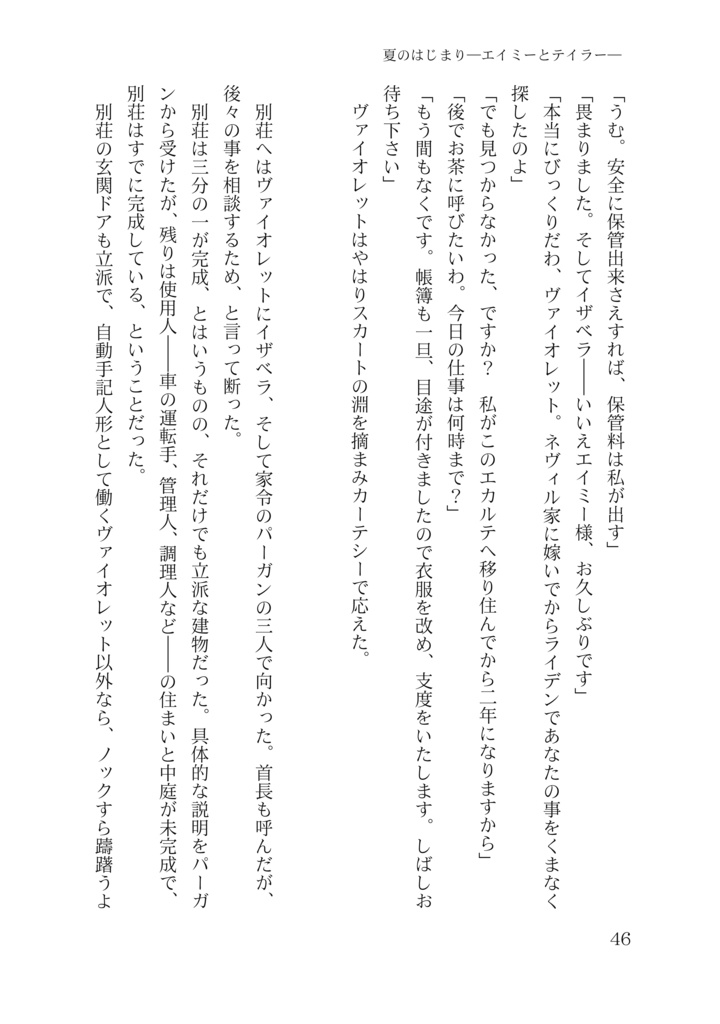 夏のはじまり―エイミーとテイラー―
「うむ。安全に保管出来さえすれば、保管料は私が出す」
「畏まりました。そしてイザベラ――いいえエイミー様、お久しぶりです」
「本当にびっくりだわ、ヴァイオレット。ネヴィル家に嫁いでからライデンであなたの事をくまなく
探したのよ」
「でも見つからなかった、ですか？　私がこのエカルテへ移り住んでから二年になりますから」
「後でお茶に呼びたいわ。今日の仕事は何時まで？」
「もう間もなくです。帳簿も一旦、目途が付きましたので衣服を改め、支度をいたします。しばしお
待ち下さい」
　ヴァイオレットはやはりスカートの淵を摘まみカーテシーで応えた。
　別荘へはヴァイオレットにイザベラ、そして家令のパーガンの三人で向かった。首長も呼んだが、
後々の事を相談するため、と言って断った。
　別荘は三分の一が完成、とはいうものの、それだけでも立派な建物だった。具体的な説明をパーガ
ンから受けたが、残りは使用人――車の運転手、管理人、調理人など――の住まいと中庭が未完成で、
別荘はすでに完成している、ということだった。
　別荘の玄関ドアも立派で、自動手記人形として働くヴァイオレット以外なら、ノックすら躊躇うよ
46